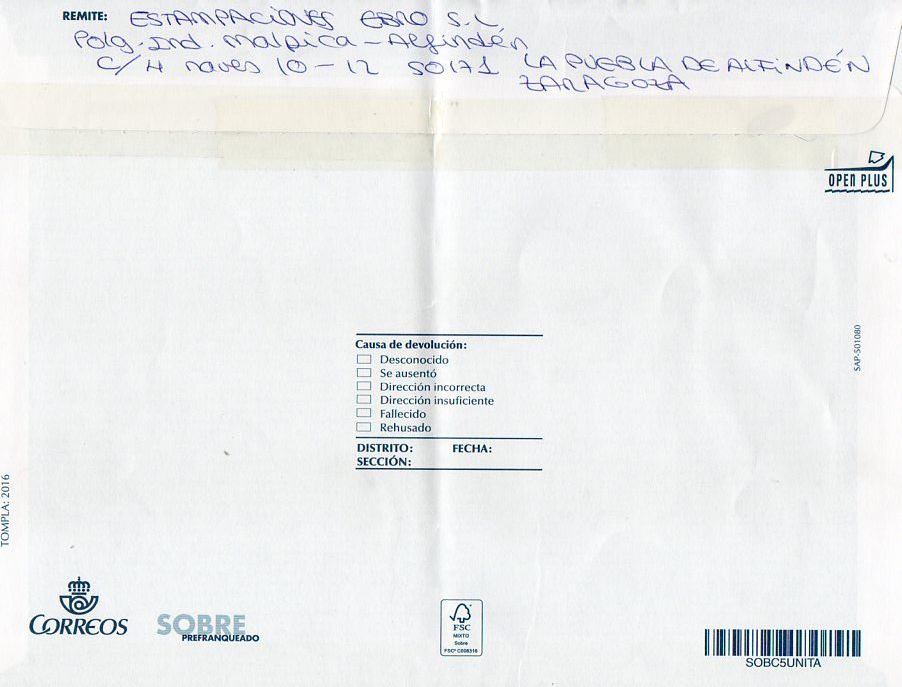 REMITE: ESTAMPACIONES EBRO S.L
Polg. Ind. Malpica - Alfindén
C/ H naves 10 - 12 50171 LA PUEBLA DE ALFINDÉN
ZARAGOZA
OPEN PLUS
SAP-501080
Causa de devolución:
Desconocido
Se ausentó
Dirección incorrecta
Dirección insuficiente
Fallecido
Rehusado
DISTRITO: FECHA:
SECCIÓN:
TOMPLA: 2016
CORREOS
SOBRE
PREFRANQUEADO
FSC
MIXTO
Sobre
FSC® C008316
SOBC5UNITA